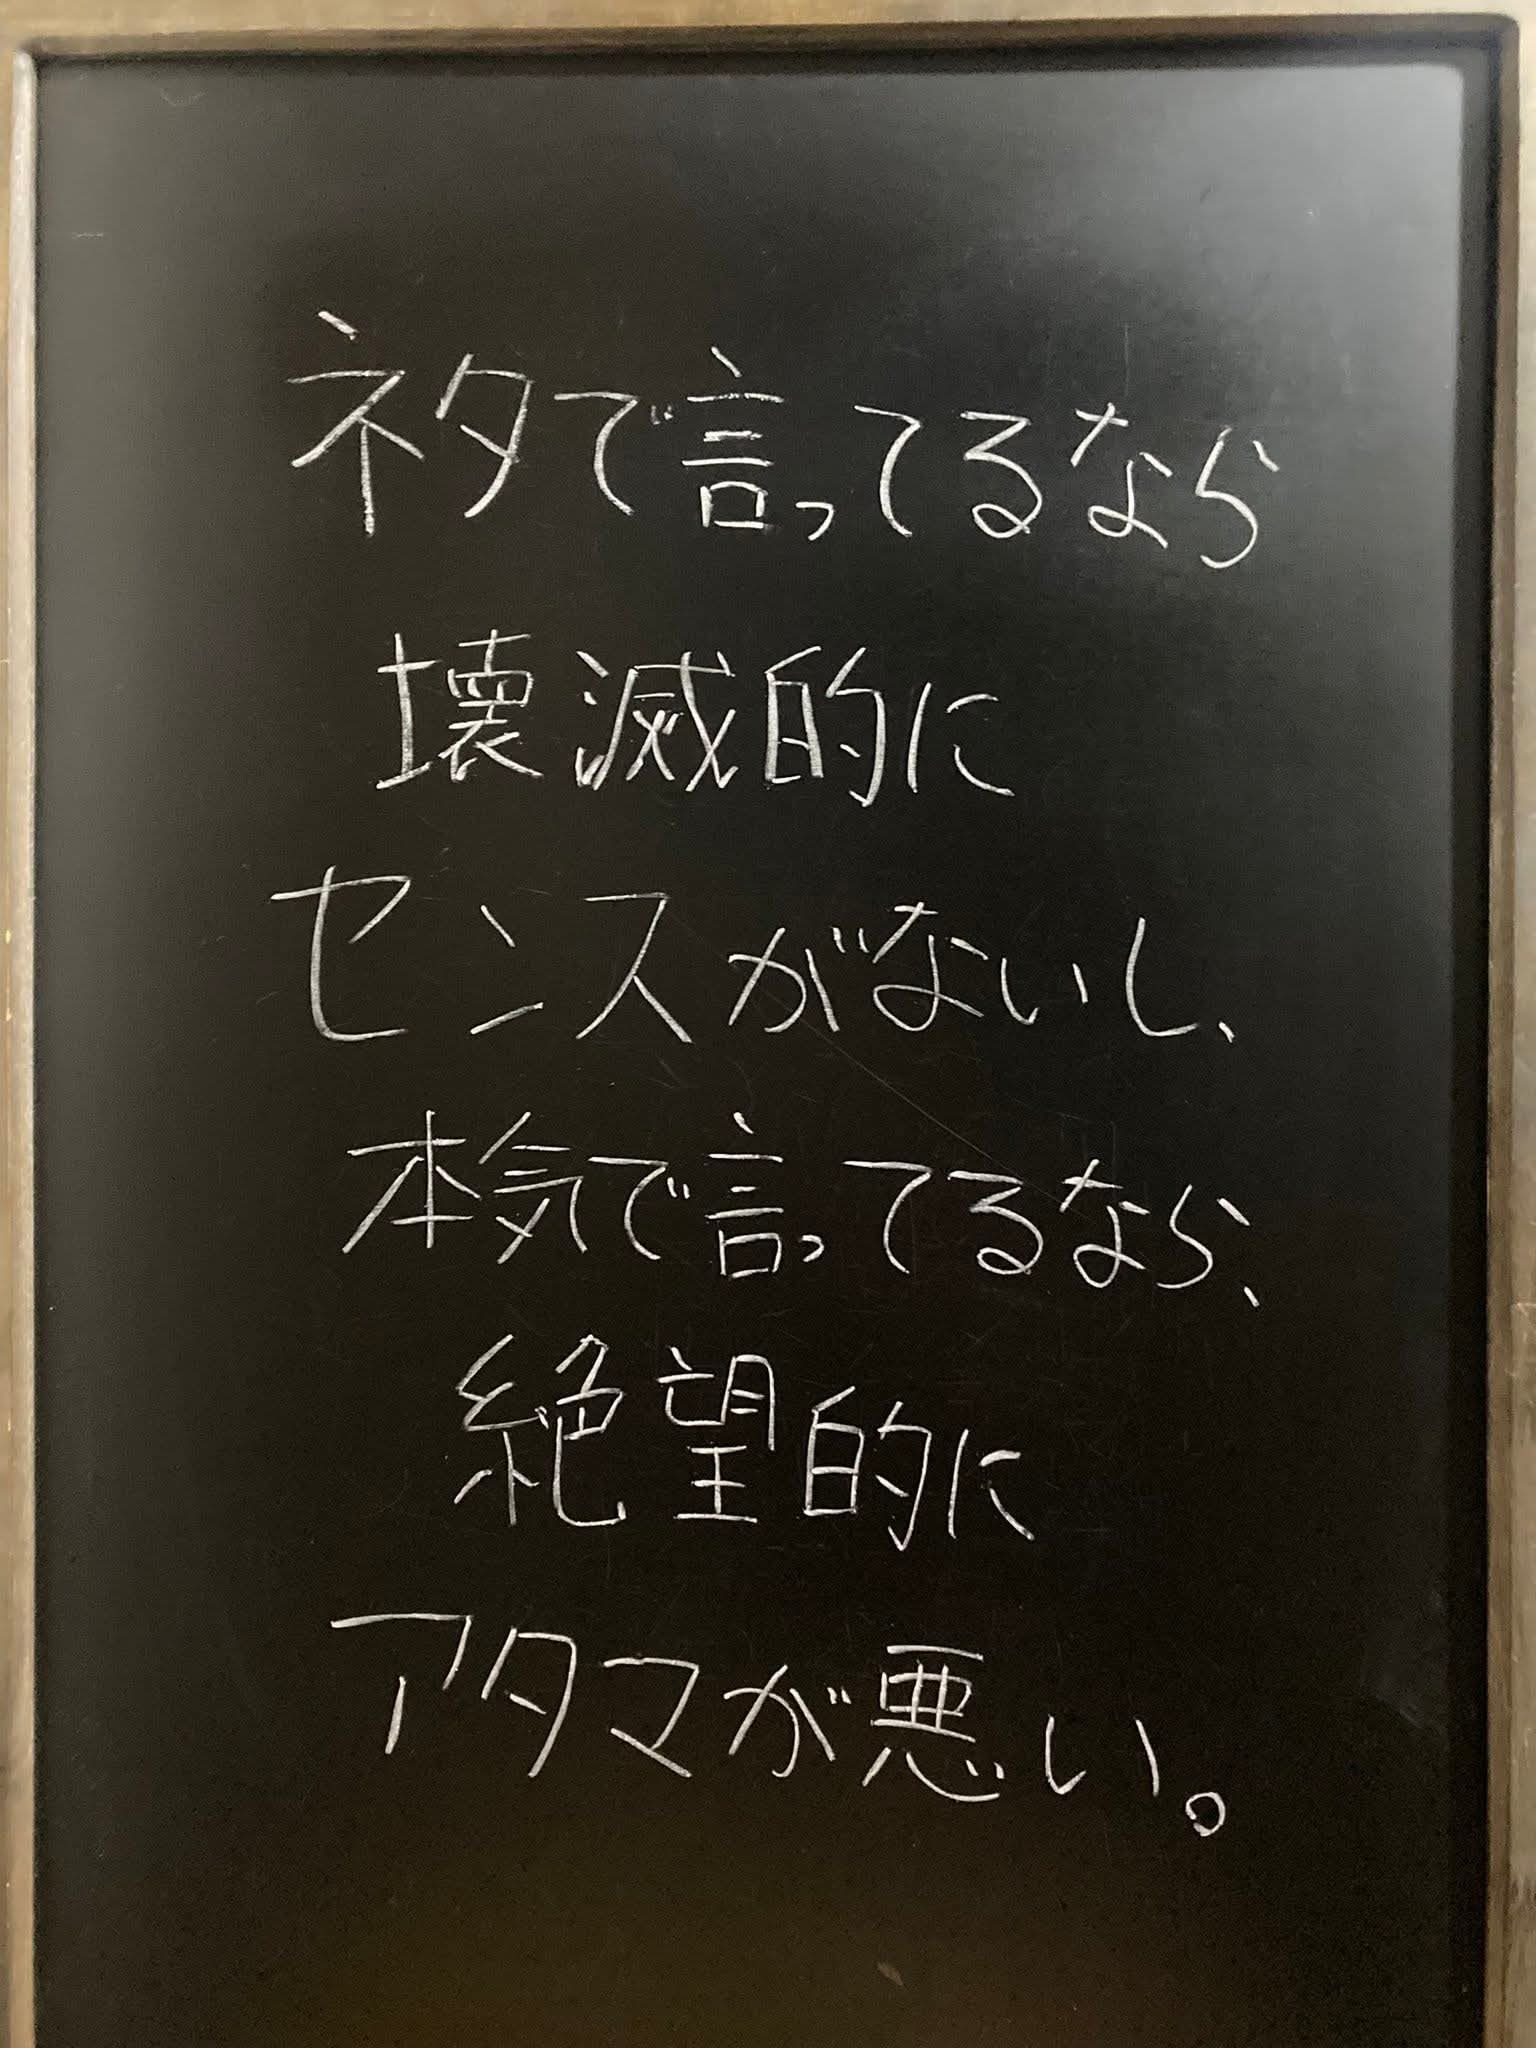 ネタで言ってるなら
壊滅的に
センスがないし、
本気で言ってるなら、
絶望的に
アタマが悪い。